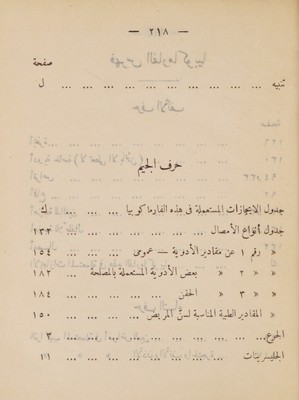 — ٢١٨ —
صفحة
تنبيه ... ... ... ... ... ... ... ... ل
حرف الجيم
جدول الايجازات المستعملة فى هذه الفارماكوبيا ... ... ... ك
جدول أنواع الأمصال ... ... ... ... ... ... ١٣٣
» رقم ١ عن مقادير الأدوية — عمومى ... ... ... ١٥٤
» » ٢ » بعض الأدوية المستعملة بالمصلحة ... ١٨٢
» » ٣ » الحقن ... ... ... ... ١٨٤
» المقادير الطبية المناسبة لسنّ المريض ... ... ... ١٥٠
الجوع ... ... ... ... ... ... ... ...
الجليسرينات ... ... ... ... ... ... ...